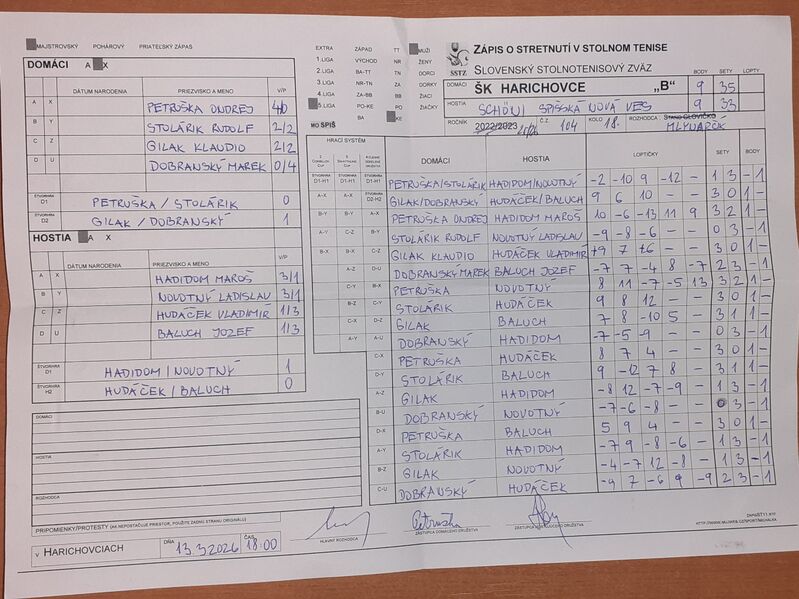 MAJSTROVSKÝ POHÁROVÝ PRIATEĽSKÝ ZÁPAS
DOMÁCI A X
DÁTUM NARODENIA PRIEZVISKO A MENO V/P
A X PETRUŠKA ONDREJ 4/0
B Y STOLÁRIK RUDOLF 2/2
C Z GILAK KLAUDIO 2/2
D U DOBRANSKÝ MAREK 0/4
ŠTVORHRA D1 PETRUŠKA / STOLÁRIK 0
ŠTVORHRA D2 GILAK / DOBRANSKÝ 1
HOSTIA A X
DÁTUM NARODENIA PRIEZVISKO A MENO V/P
A X HADIDOM MAROŠ 3/1
B Y NOVOTNÝ LADISLAV 3/1
C Z HUDÁČEK VLADIMIR 1/3
D U BALUCH JOZEF 1/3
ŠTVORHRA D1 HADIDOM / NOVOTNÝ 1
ŠTVORHRA H2 HUDÁČEK / BALUCH 0
DOMÁCI
HOSTIA
ROZHODCA
PRIPOMIENKY/PROTESTY (AK NEPOSTAČUJE PRIESTOR, POUŽITE ZADNÚ STRANU ORIGINÁLU)
V HARICHOVCIACH DŇA 13.3.2026 ČAS 18:00
EXTRA ZÁPAD TT MUŽI
1.LIGA VÝCHOD NR ŽENY
2.LIGA BA-TT TN DORCI
3.LIGA NR-TN ZA DORKY
4.LIGA ZA-BB BB ŽIACI
5.LIGA PO-KE PO ŽIAČKY
BA KE
MO SPIŠ
SSTZ
ZÁPIS O STRETNUTÍ V STOLNOM TENISE
SLOVENSKÝ STOLNOTENISOVÝ ZVÄZ
BODY SETY LOPTY
DOMÁCI ŠK HARICHOVCE „B" 9 35
HOSTIA SCHÖNI SPIŠSKÁ NOVÁ VES 9 33
ROČNÍK 2022/2023 25/26 Č.Z. 104 KOLO 18. ROZHODCA MLYNARČÍK
HRACÍ SYSTÉM DOMÁCI HOSTIA LOPTIČKY SETY BODY
D1-H1 D1-H1 PETRUŠKA/STOLÁRIK HADIDOM/NOVOTNÝ -2 -10 9 -12 - 1 3 - 1
A-X A-X D2-H2 GILAK/DOBRANSKÝ HUDÁČEK/BALUCH 9 6 10 - - 3 0 1 -
B-Y B-Y A-X PETRUŠKA ONDREJ HADIDOM MAROŠ 10 -6 -13 11 9 3 2 1 -
A-Y C-Z B-Y STOLÁRIK RUDOLF NOVOTNÝ LADISLAV -9 -8 -6 - - 0 3 - 1
B-X B-X C-Z GILAK KLAUDIO HUDÁČEK VLADIMÍR +9 7 +6 - - 3 0 1 -
A-Z D-U DOBRANSKÝ MAREK BALUCH JOZEF -7 7 -4 8 -7 2 3 - 1
C-Y B-X PETRUŠKA NOVOTNÝ 8 11 -7 -5 13 3 2 1 -
B-Z C-Y STOLÁRIK HUDÁČEK 9 8 12 - - 3 0 1 -
C-X D-Z GILAK BALUCH 7 8 -10 5 - 3 1 1 -
A-U DOBRANSKÝ HADIDOM -7 -5 -9 - - 0 3 - 1
C-X PETRUŠKA HUDÁČEK 8 7 4 - - 3 0 1 -
D-Y STOLÁRIK BALUCH 9 -12 7 8 - 3 1 1 -
A-Z GILAK HADIDOM -8 12 -7 -9 - 1 3 - 1
B-U DOBRANSKÝ NOVOTNÝ -7 -6 -8 - - 0 3 - 1
D-X PETRUŠKA BALUCH 5 9 4 - - 3 0 1 -
A-Y STOLÁRIK HADIDOM -7 9 -8 -6 - 1 3 - 1
B-Z GILAK NOVOTNÝ -4 -7 12 -8 - 1 3 - 1
C-U DOBRANSKÝ HUDÁČEK -9 7 -6 9 -9 2 3 - 1
HLAVNÝ ROZHODCA
Petruška
ZÁSTUPCA DOMÁCEHO DRUŽSTVA
ZÁSTUPCA HOSŤUJÚCEHO DRUŽSTVA